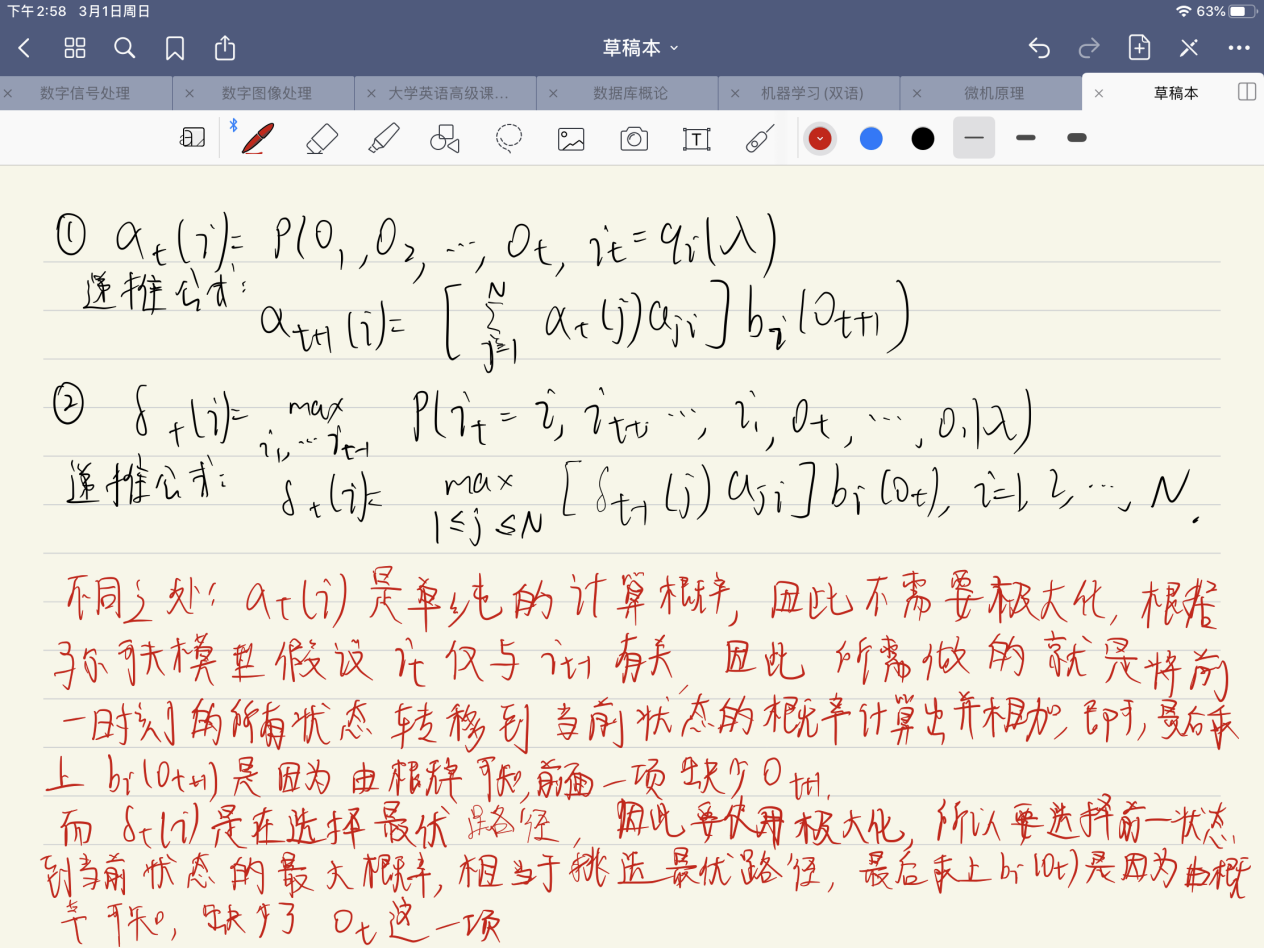 下午2:58 3月1日周日 63%
草稿本
数字信号处理 数字图像处理 大学英语高级课... 数据库概论 机器学习(双语) 微机原理 草稿本
① α_t(i)= P(O_1,O_2,…,O_t, i_t=q_i|λ)
递推公式:
α_{t+1}(i)= [∑_{j=1}^{N} α_t(j)a_{ji}]b_i(O_{t+1})
② δ_t(i)= max_{i_1,…i_{t-1}} P(i_t=i, i_{t-1}…, i_1, O_t,…,O_1|λ)
递推公式: δ_t(i)= max_{1≤j≤N} [δ_{t-1}(j)a_{ji}]b_i(O_t), i=1,2,…,N.
不同之处: α_t(i)是单纯的计算概率,因此不需要极大化,根据
马尔可夫模型假设i_t仅与i_{t-1}有关,因此所需做的就是将前
一时刻的所有状态转移到当前状态的概率计算出并相加,即可,最后乘
上b_i(O_{t+1})是因为由概率可知,前面一项缺少O_{t+1}.
而δ_t(i)是在选择最优路径,因此要使用极大化,所以要选择前一状态
到当前状态的最大概率,相当于挑选最优路径,最后乘上b_i(O_t)是因为由概
率可知,缺少了O_t这一项